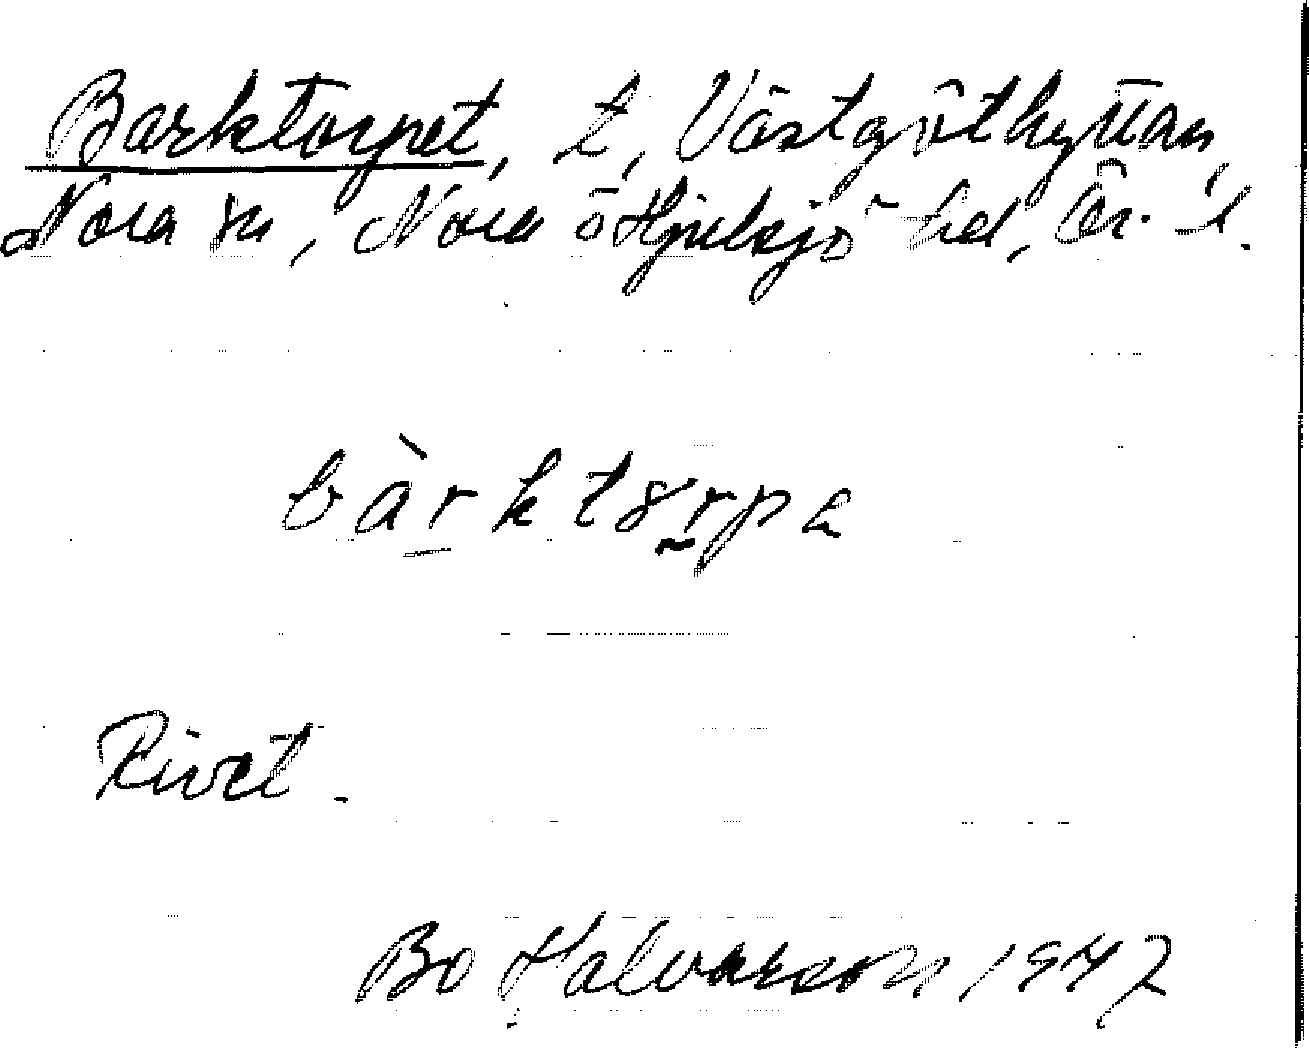 Barktorpet, t, Västgöthyttan,
Nora sn, Nora ö Hjulsjö hd, Ör. l.
bàrktorpe
Rivet.
Bo Halvarson 1947